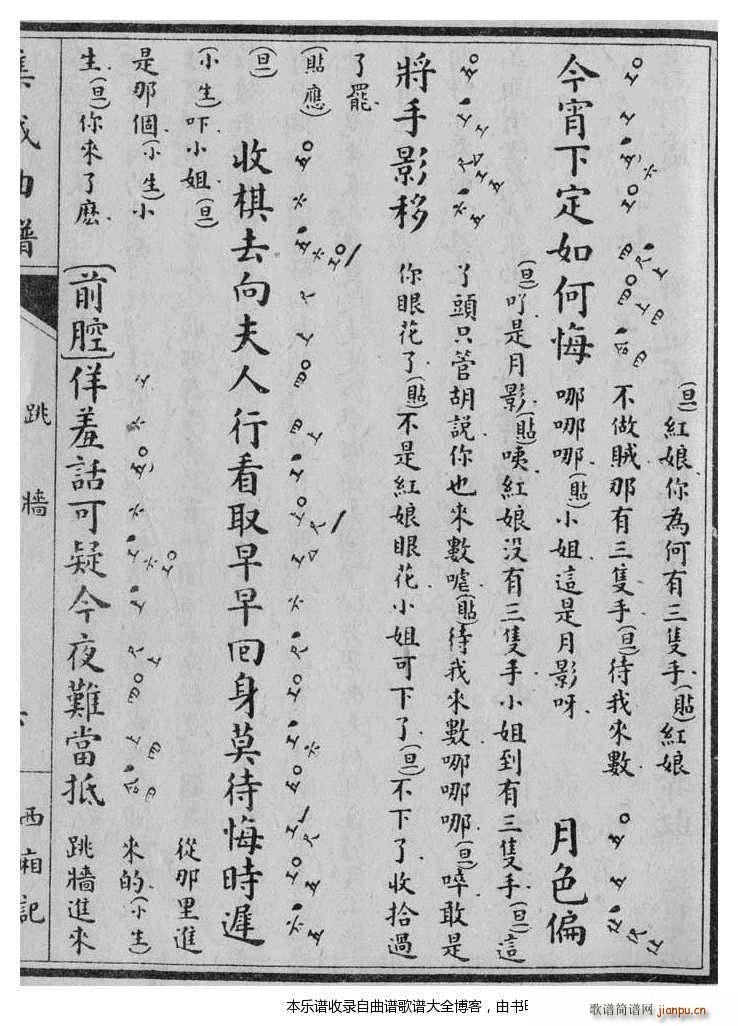 今宵下定如何悔
(旦)紅娘你為何有三隻手(貼)紅娘
不做賊那有三隻手(旦)待我來數
哪哪哪(貼)小姐這是月影呀
月色偏
將手影移
(旦)吖是月影(貼)咦紅娘没有三隻手小姐到有三隻手(旦)這
了頭只管胡説你也來數嘘(貼)待我來數哪哪哪(旦)啐敢是
你眼花了(貼)不是紅娘眼花小姐可下了(旦)不下了收拾過
了罷
(貼應)
(旦)
收棋去向夫人行看取早早回身莫待悔時遲
(小生)吓小姐(旦)
是那個(小生)小
生(旦)你來了麽
[前腔]佯羞話可疑今夜難當抵
從那里進
來的(小生)
跳牆進來
集成曲譜
跳牆
西廂記
本乐谱收录自曲谱歌谱大全博客，由书
歌谱简谱网
jianpu.cn